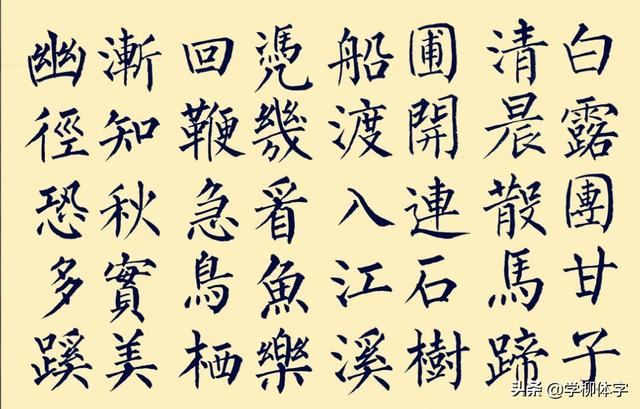 白露團甘子
清晨散馬蹄
圃開連石樹
船渡入江溪
凴幾看魚樂
回鞭急鳥栖
漸知秋實美
幽徑恐多蹊
头条 @学柳体字